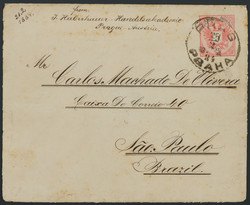 from
Prague, Austria
PRAG
PRAHA
Mr.
Carlos Machado De Oliveira
Caixa Do Correio 40
São Paulo
Brazil.